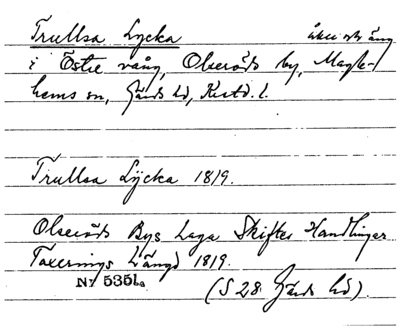 Trullsa Lycka åker och äng
i Östre vång, Olseröds by, Magle-
hems sn, Gärds hd, Krstd. l.
Trullsa Lycka 1819.
Olseröds Bys Laga Skiftes Handlingar
Taxerings Längd 1819.
N:/ 5351a
(S 28 Gärds hd).